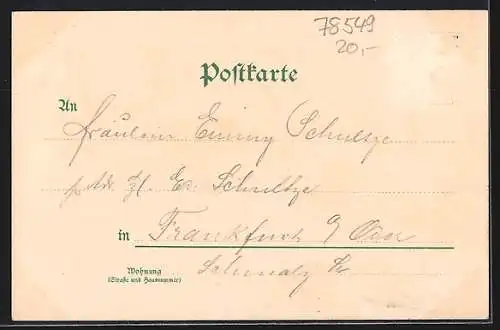 78549
20,-
Postkarte
An
Fräulein Emmy Schultze
p. Adr. H. Schultze
in Frankfurt a/ Oder
Wohnung
(Straße und Hausnummer)